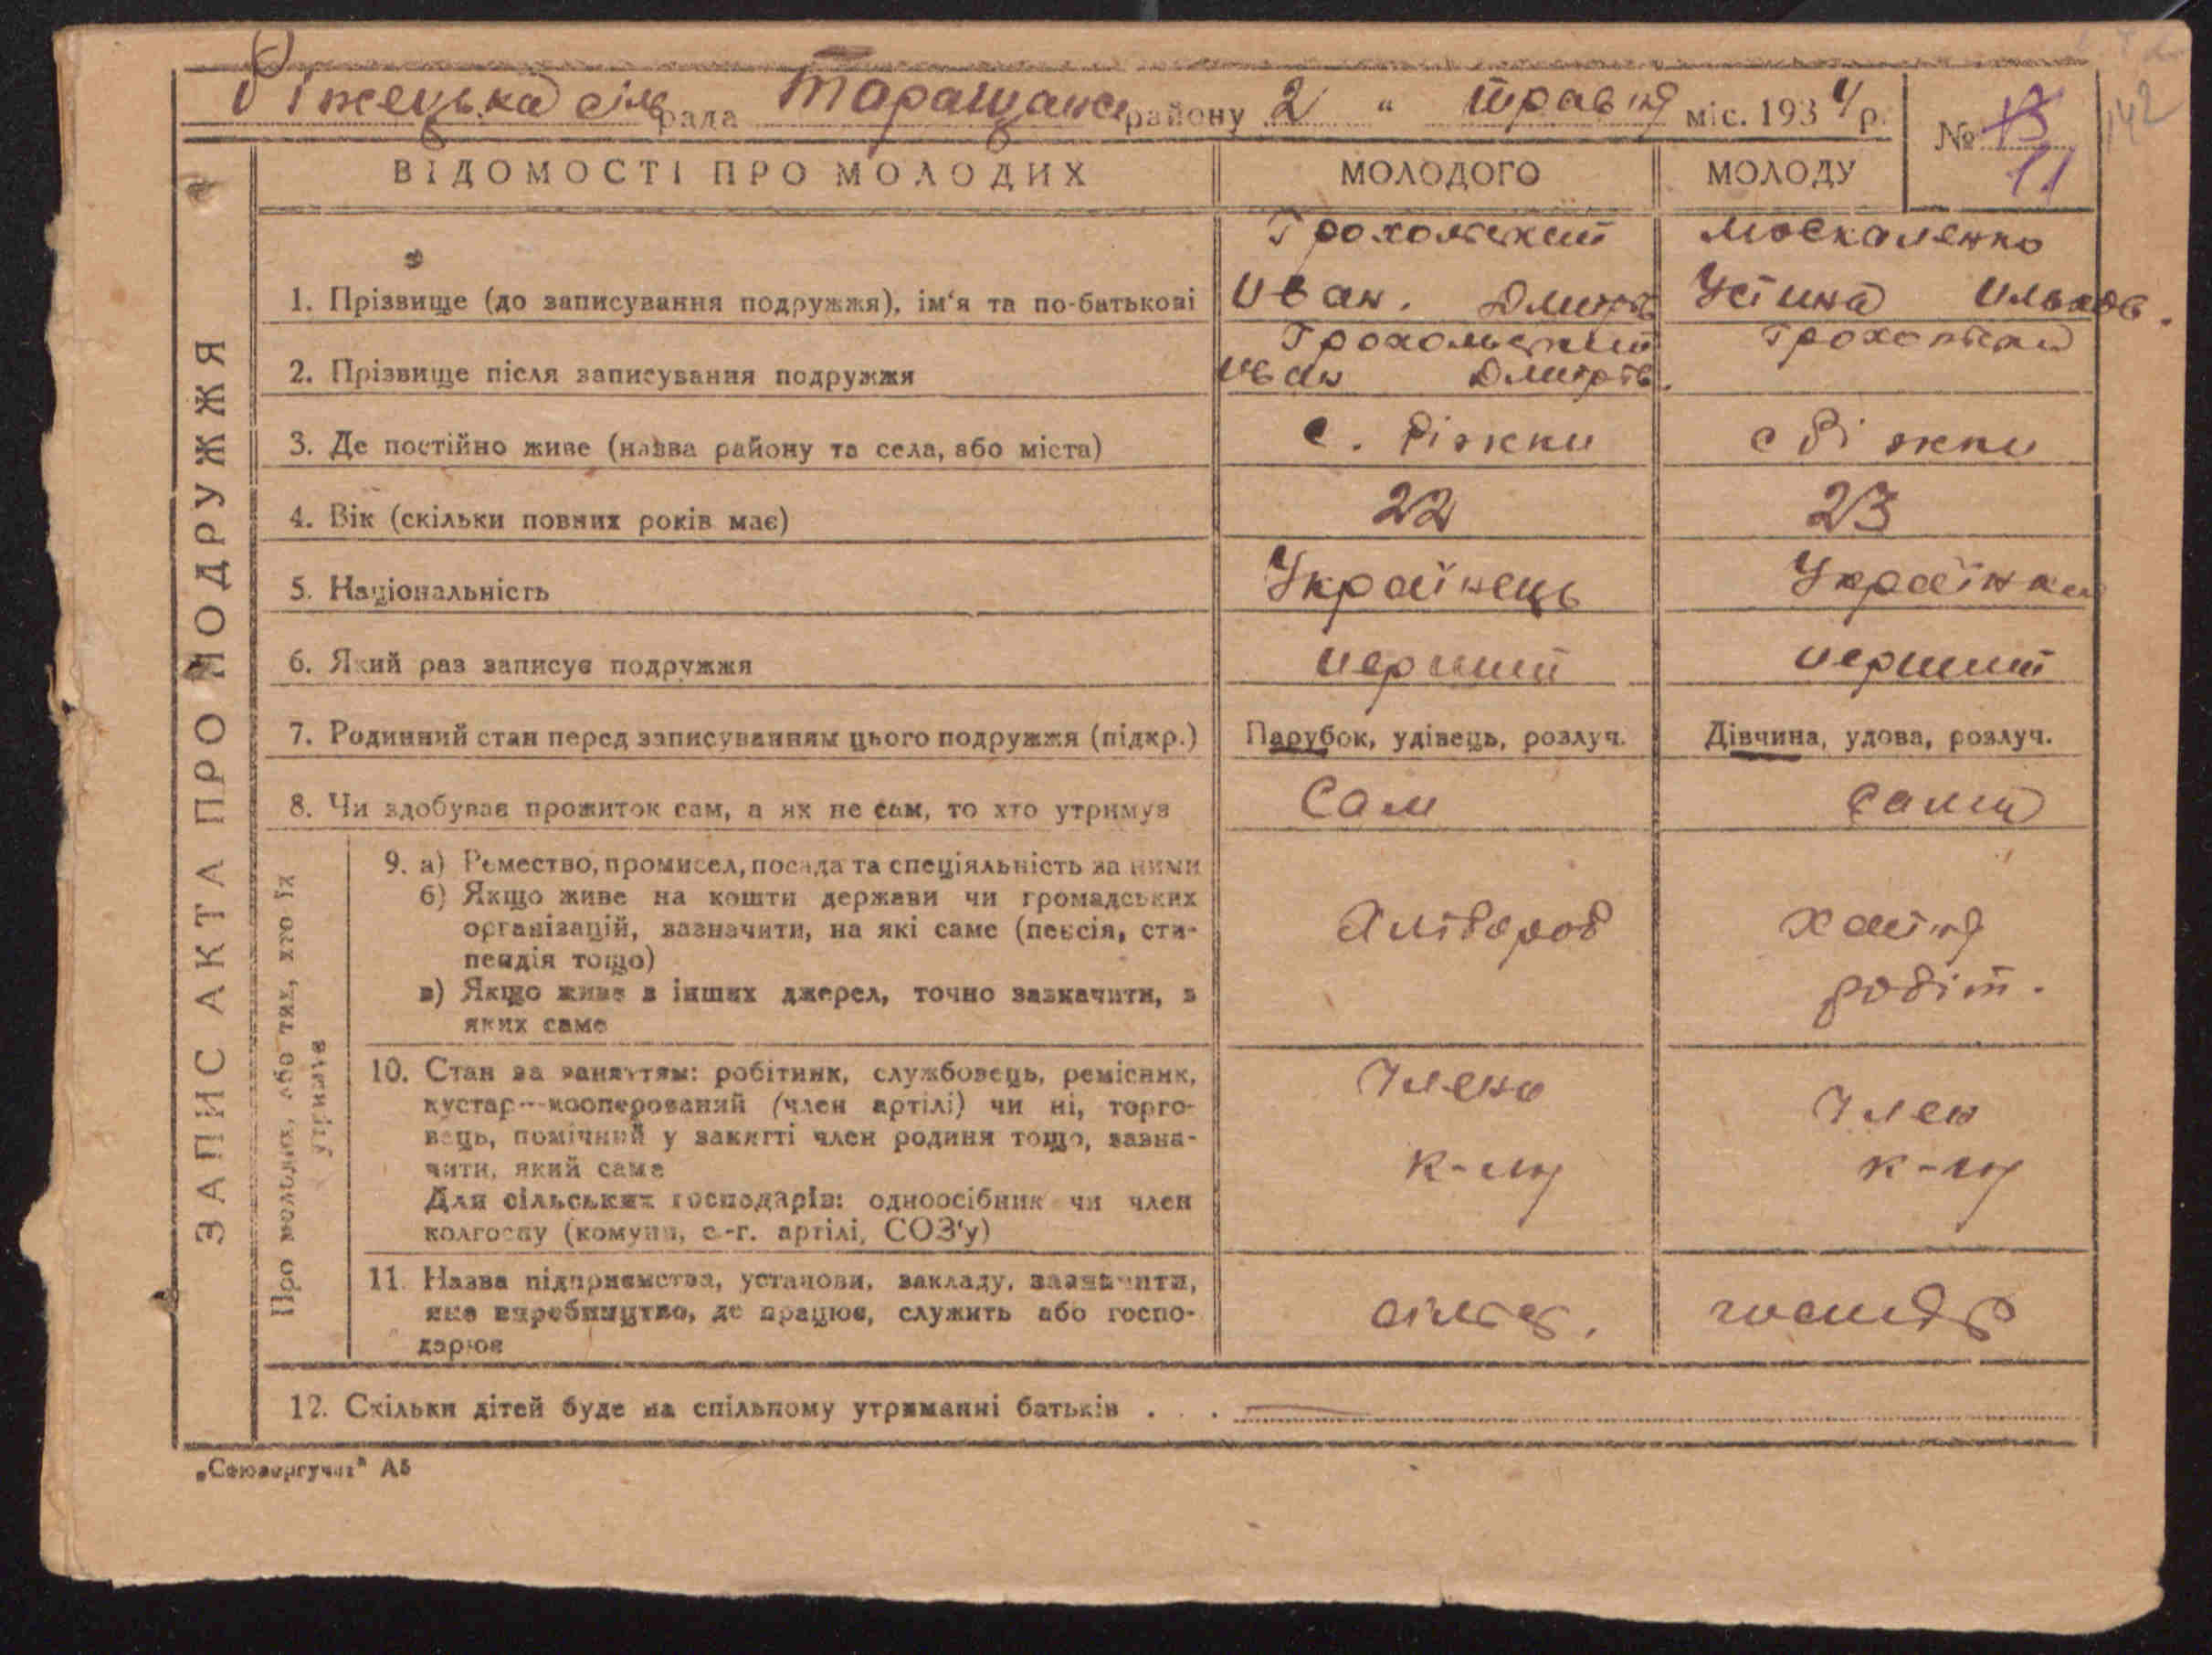 Ріжецька сільрада Таращанс району 2 " травня міс. 1934 р.
№ 13
11
142
ВІДОМОСТІ ПРО МОЛОДИХ
МОЛОДОГО
МОЛОДУ
ЗАПИС АКТА ПРО ПОДРУЖЖЯ
1. Прізвище (до записування подружжя), ім'я та по-батькові
Трохольский
Иван. Дмитр
Москаленко
Устина Ильков.
2. Прізвище після записування подружжя
Трохольский
Иван Дмитров.
Трохольска
3. Де постійно живе (назва району та села, або міста)
с. Ріжки
с Ріжки
4. Вік (скільки повних років має)
22
23
5. Національність
Українець
Українка
6. Який раз записує подружжя
перший
перший
7. Родинний стан перед записуванням цього подружжя (підкр.)
Парубок, удівець, розлуч.
Дівчина, удова, розлуч.
8. Чи здобуває прожиток сам, а як не сам, то хто утримує
Сам
Сама
Про молодих, або тих, хто їх
утримує
9. а) Ремество, промисел, посада та спеціяльність за ними
б) Якщо живе на кошти держави чи громадських
організацій, зазначити, на які саме (пенсія, сти-
пендія тощо)
в) Якщо живе з інших джерел, точно зазначити, з
яких саме
Хлібороб
Хатня
робіт.
10. Стан за заняттям: робітник, службовець, ремісник,
кустар--кооперований (член артілі) чи ні, торго-
вець, помічний у занятті член родини тощо, зазна-
чити, який саме
Для сільських господарів: одноосібник чи член
колгоспу (комуни, с.-г. артілі, СОЗ'у)
Член
к-пу
Член
к-пу
11. Назва підприємства, установи, закладу, зазначити,
яке виробництво, де працює, служить або госпо-
дарює
сільск.
господр
12. Скільки дітей буде на спільному утриманні батьків . . .
„Союзоргучет" А5